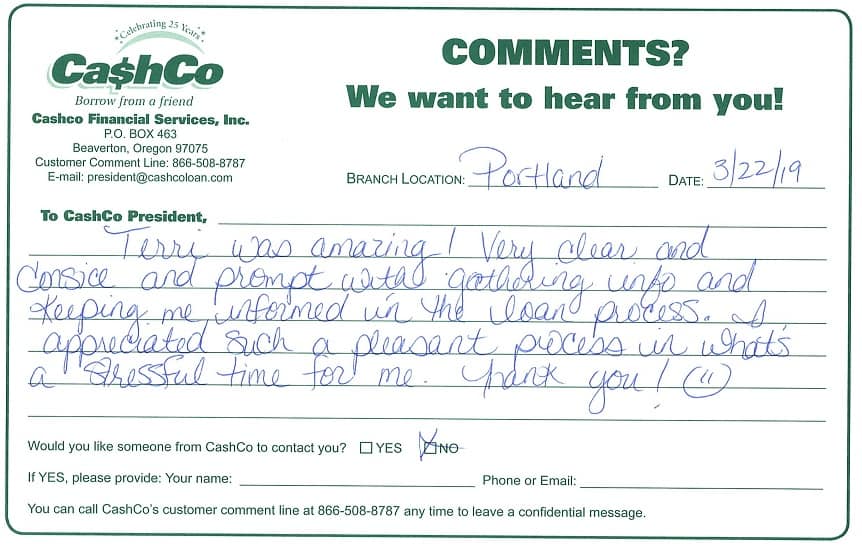 Celebrating 25 Years
Ca$hCo
Borrow from a friend
Cashco Financial Services, Inc.
P.O. BOX 463
Beaverton, Oregon 97075
Customer Comment Line: 866-508-8787
E-mail: president@cashcoloan.com
COMMENTS?
We want to hear from you!
BRANCH LOCATION: Portland DATE: 3/22/19
To CashCo President,
Terri was amazing! Very clear and
Consice and prompt with gathering info and
Keeping me informed in the loan process. I
appreciated such a pleasant process in what's
a stressful time for me. Thank you!
Would you like someone from CashCo to contact you? YES NO
If YES, please provide: Your name: Phone or Email:
You can call CashCo's customer comment line at 866-508-8787 any time to leave a confidential message.